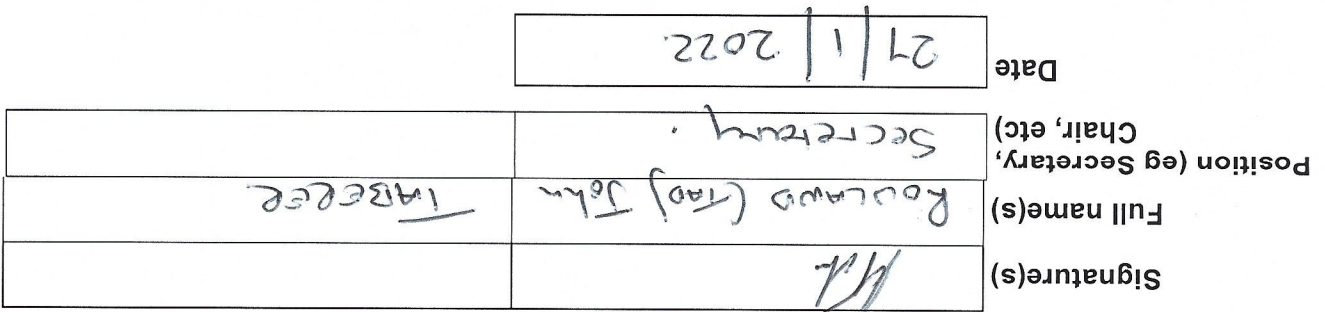 Signature(s)
Full name(s) ROWLAND (TAD) John TABERER
Position (eg Secretary,
Chair, etc) Secretary.
Date 27/1/2022